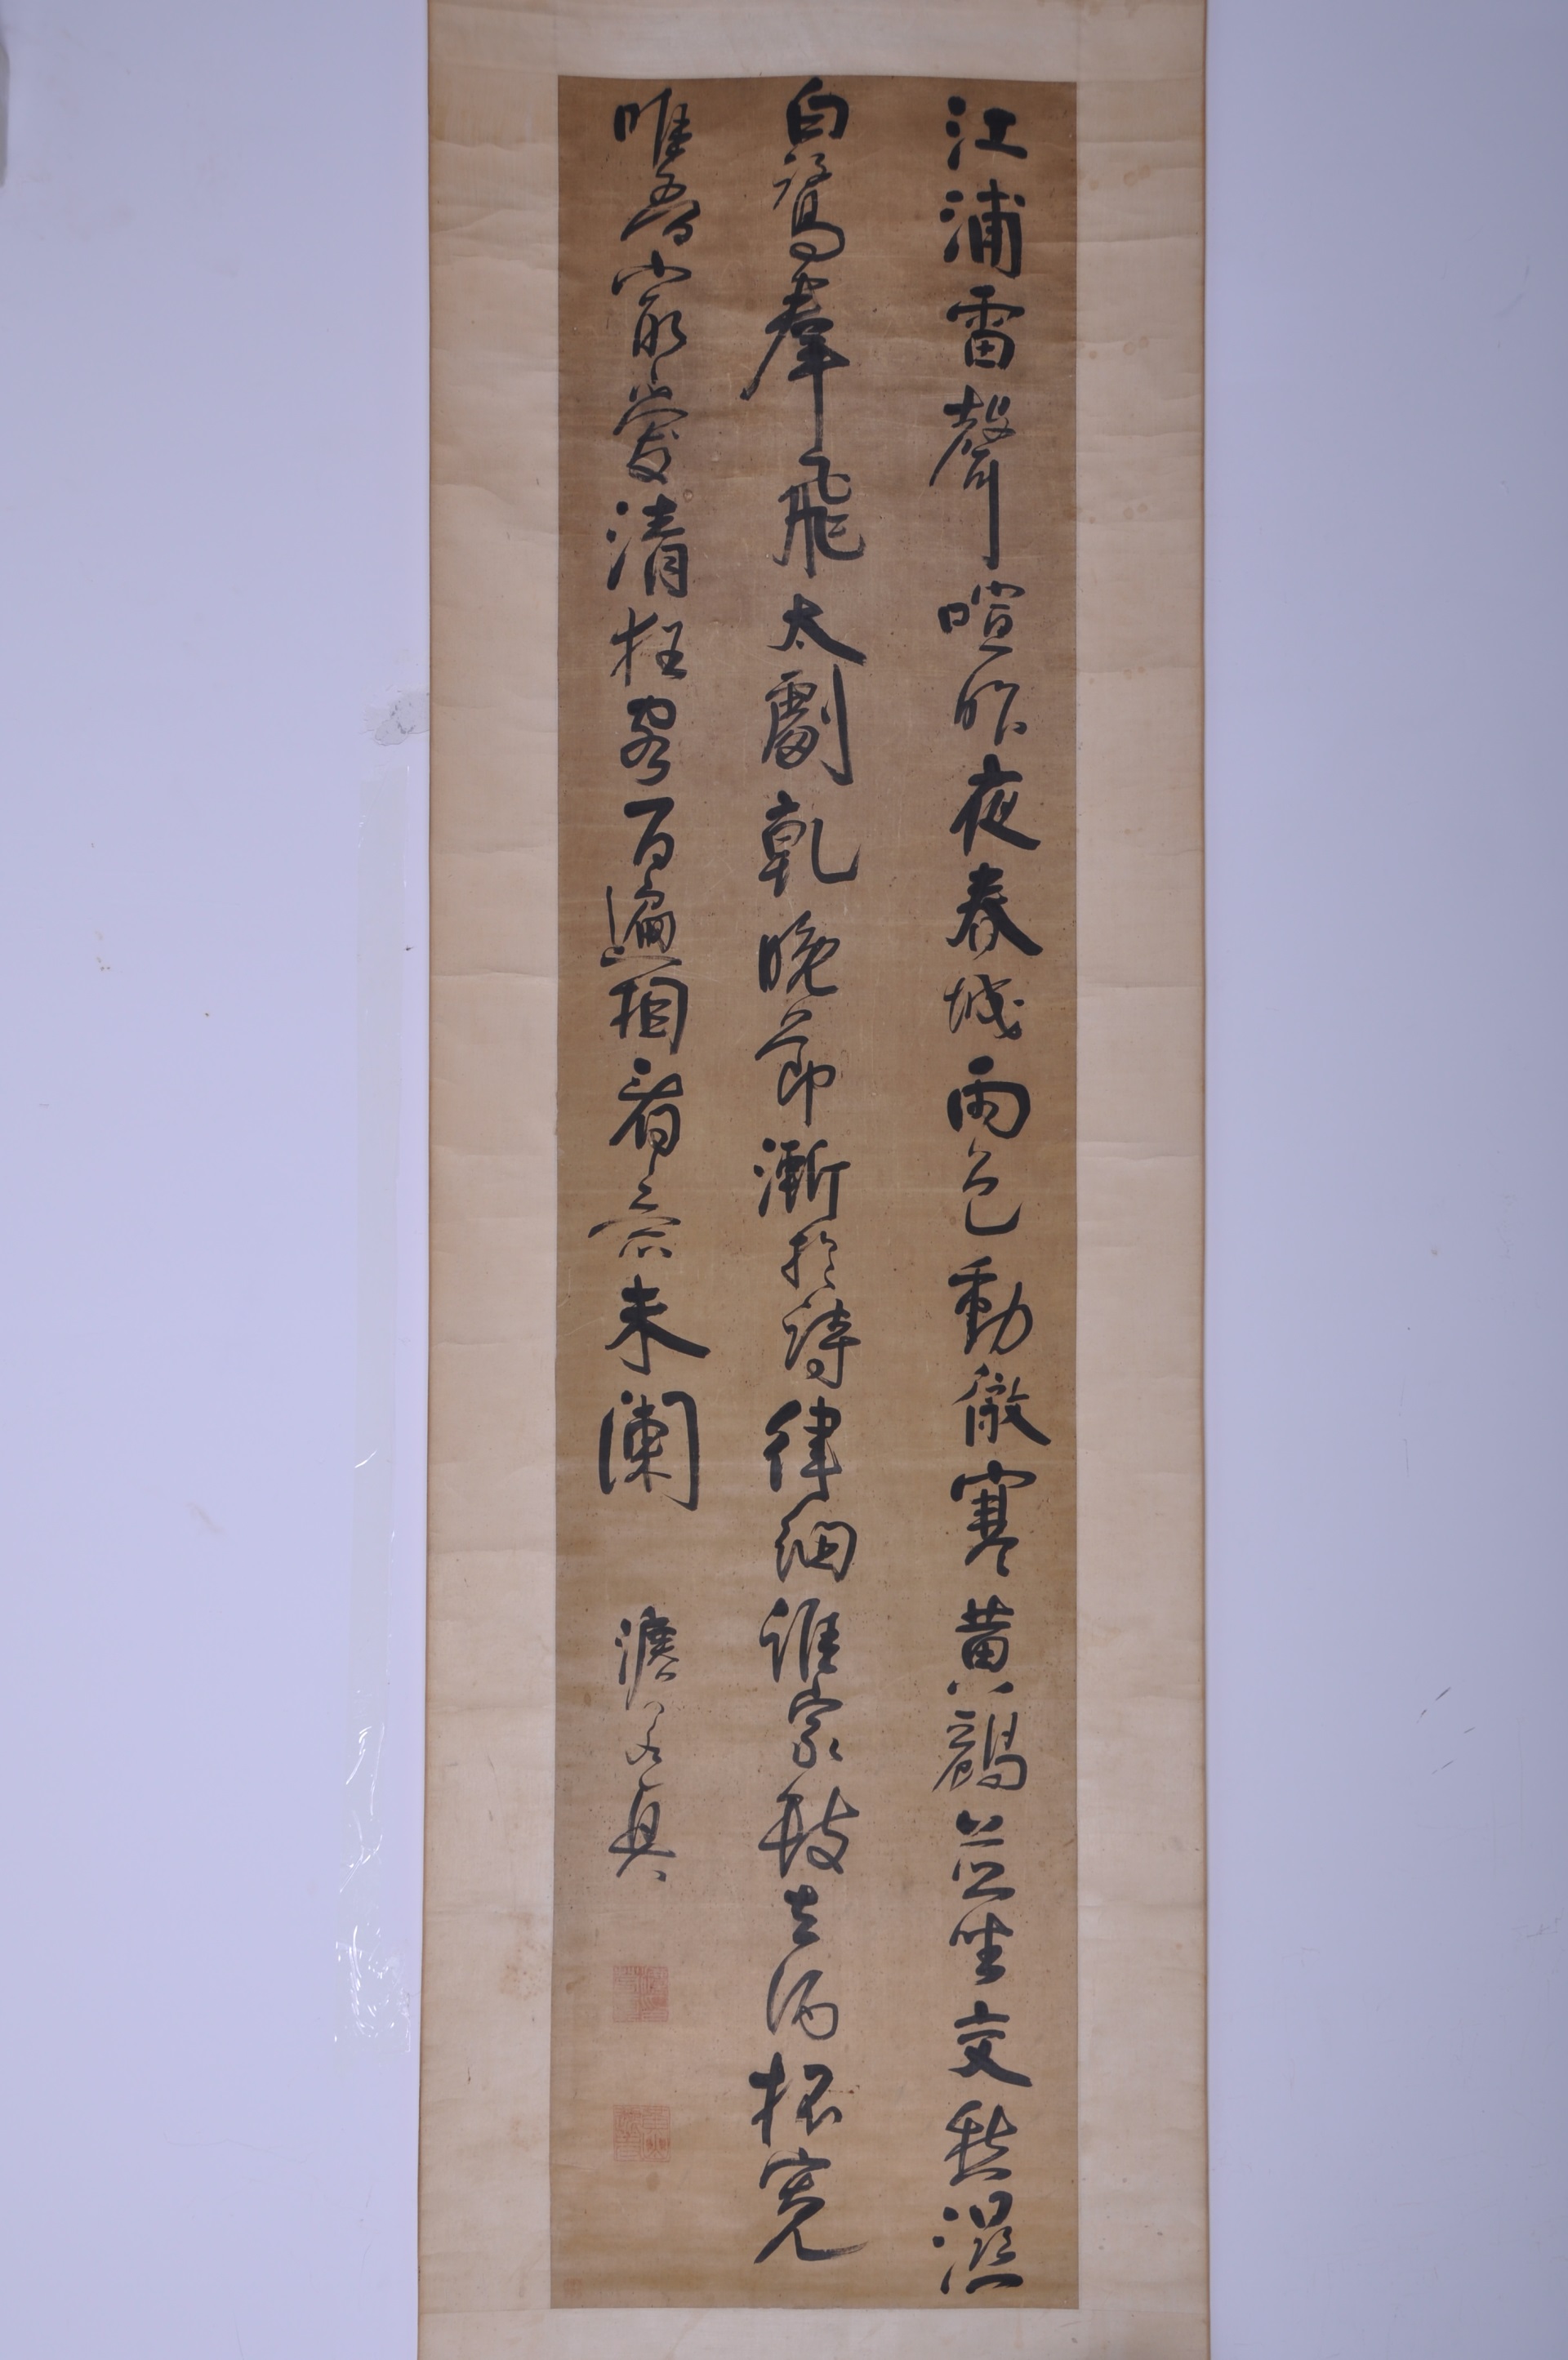 江浦雷聲喧昨夜春城雨色動微寒黃鸝並坐交愁濕
白鷺羣飛太劇乾晚節漸於詩律細誰家數去酒杯寬
唯吾最愛清狂客百遍相看意未闌